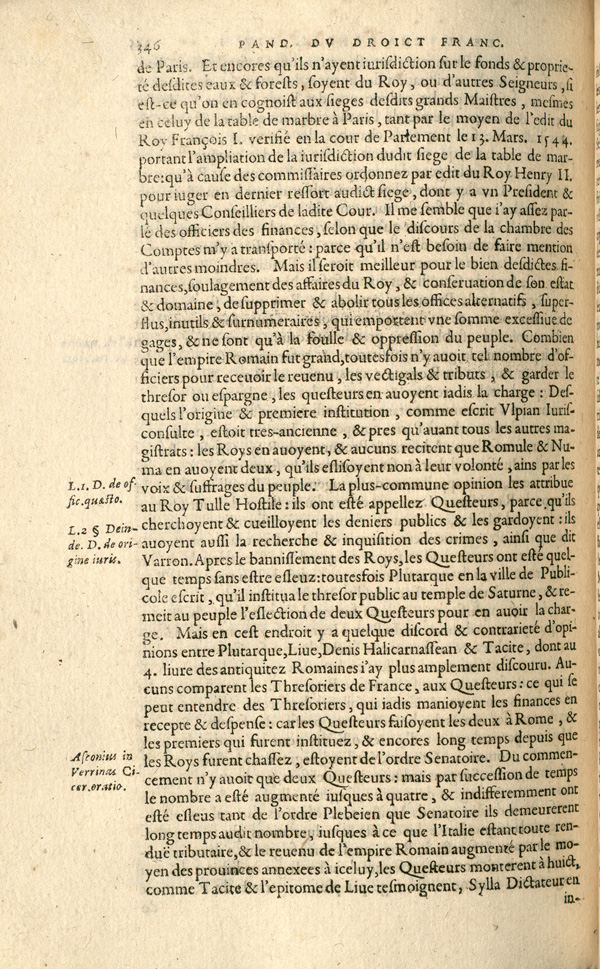 346 PAND. DV DROICT FRANC.
de Paris. Et encores qu'ils n'ayent iurisdiction sur le fonds & proprie-
té desdites eaux & forests, soyent du Roy, ou d'autres Seigneurs, si
est-ce qu'on en cognoist aux sieges desdits grands Maistres, mesmes
en celuy de la table de marbre à Paris, tant par le moyen de l'edit du
Roy François I. verifié en la cour de Parlement le 13. Mars. 1544.
portant l'ampliation de la iurisdiction dudit siege de la table de mar-
bre: qu'à cause des commissaires ordonnez par edit du Roy Henry II.
pour iuger en dernier ressort audict siege, dont y a vn President &
quelques Conseilliers de ladite Cour. Il me semble que i'ay assez par-
lé des officiers des finances, selon que le discours de la chambre des
Comptes m'y a transporté: parce qu'il n'est besoin de faire mention
d'autres moindres. Mais il seroit meilleur pour le bien desdictes fi-
nances, soulagement des affaires du Roy, & conseruation de son estat
& domaine, de supprimer & abolir tous les offices alternatifs, super-
flus, inutils & surnumeraires, qui emportent vne somme excessiue de
gages, & ne sont qu'à la foulle & oppression du peuple. Combien
que l'empire Romain fut grand, toutesfois n'y auoit tel nombre d'of-
ficiers pour receuoir le reuenu, les vectigals & tributs, & garder le
thresor ou espargne, les questeurs en auoyent iadis la charge: Des-
quels l'origine & premiere institution, comme escrit Vlpian Iuris-
consulte, estoit tres-ancienne, & pres qu'auant tous les autres ma-
gistrats: les Roys en auoyent, & aucuns recitent que Romule & Nu-
ma en auoyent deux, qu'ils eslisoyent non à leur volonté, ains par les
voix & suffrages du peuple. La plus-commune opinion les attribue
au Roy Tulle Hostile: ils ont esté appellez Questeurs, parce qu'ils
cherchoyent & cueilloyent les deniers publics & les gardoyent: ils
auoyent aussi la recherche & inquisition des crimes, ainsi que dit
Varron. Apres le bannissement des Roys, les Questeurs ont esté quel-
que temps sans estre esleuz: toutesfois Plutarque en la ville de Publi-
cole escrit, qu'il institua le thresor public au temple de Saturne, & re-
meit au peuple l'eslection de deux Questeurs pour en auoir la char-
ge. Mais en cest endroit y a quelque discord & contrarieté d'opi-
nions entre Plutarque, Liue, Denis Halicarnassean & Tacite, dont au
4. liure des antiquitez Romaines i'ay plus amplement discouru. Au-
cuns comparent les Thresoriers de France, aux Questeurs: ce qui se
peut entendre des Thresoriers, qui iadis manioyent les finances en
recepte & despense: car les Questeurs faisoyent les deux à Rome, &
les premiers qui furent instituez, & encores long temps depuis que
les Roys furent chassez, estoyent de l'ordre Senatoire. Du commen-
cement n'y auoit que deux Questeurs: mais par succession de temps
le nombre a esté augmenté iusques à quatre, & indifferemment ont
esté esleus tant de l'ordre Plebeien que Senatoire ils demeurerent
long temps audit nombre, iusques à ce que l'Italie estant toute ren-
duë tributaire, & le reuenu de l'empire Romain augmenté par le mo-
yen des prouinces annexees à iceluy, les Questeurs monterent à huict,
comme Tacite & l'epitome de Liue tesmoignent, Sylla Dictateur en
in-
L. 1. D. de of-
fic. quæsto.
L. 2 § Dein-
de. D. de ori-
gine iuris.
Asconius in
Verrinas Ci-
cer. oratio.